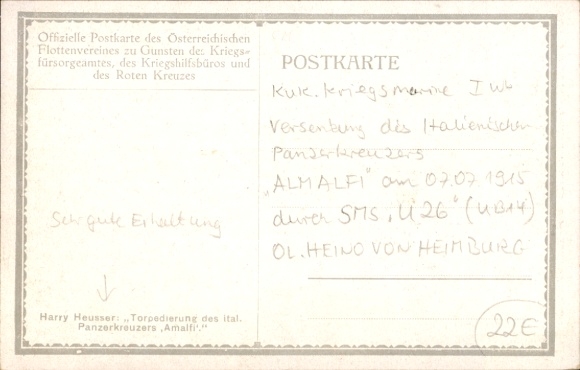 Offizielle Postkarte des Österreichischen
Flottenvereines zu Gunsten des Kriegs-
fürsorgeamtes, des Kriegshilfsbüros und
des Roten Kreuzes
Sehr gute Erhaltung
Harry Heusser: „Torpedierung des ital.
Panzerkreuzers ‚Amalfi‘.“
POSTKARTE
KuK. Kriegsmarine I WK
Versenkung des Italienischen
Panzerkreuzers
„ALMALFI" am 07.07.1915
durch SMS „U26" (UB14)
OL. HEINO VON HEIMBURG
22€